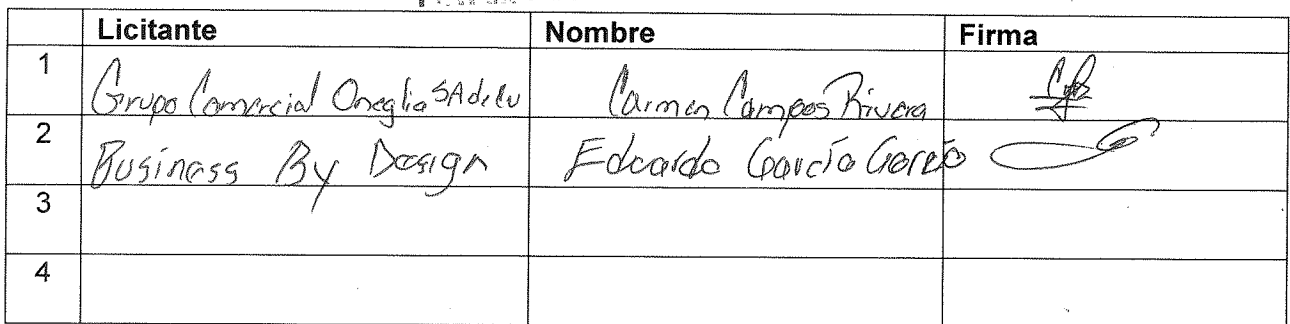 Licitante Nombre Firma
1 Grupo Comercial Oneglia SA de CV Carmen Campos Rivera
2 Business By Design Eduardo García García
3
4